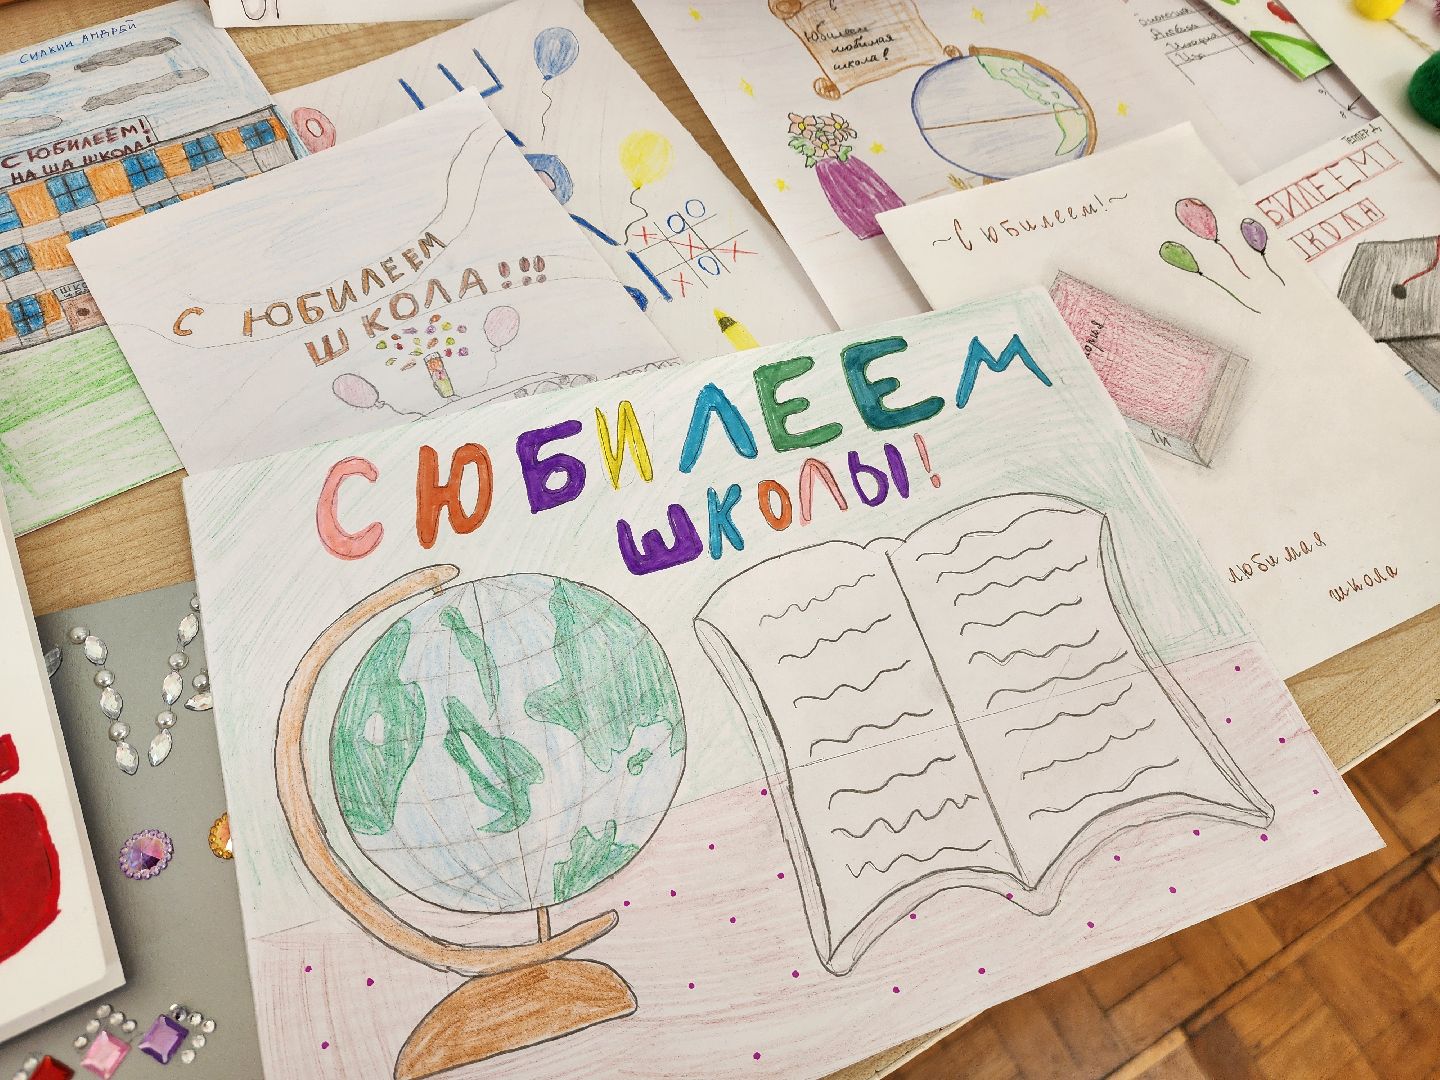 СИЛКИН АНДРЕЙ
С ЮБИЛЕЕМ!
НАША ШКОЛА!
С ЮБИЛЕЕМ
ШКОЛА!!!
Юбилеем
любимая
школа!
~С юбилеем!~
любимая
школа
БИЛЕЕМ!
ШКОЛА
С ЮБИЛЕЕМ
ШКОЛЫ!